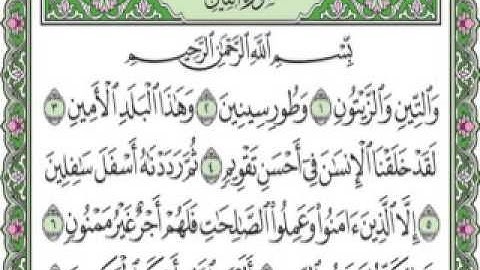 بِسْمِ اللَّهِ الرَّحْمَٰنِ الرَّحِيمِ
وَالتِّينِ وَالزَّيْتُونِ ١ وَطُورِ سِينِينَ ٢ وَهَٰذَا الْبَلَدِ الْأَمِينِ ٣
لَقَدْ خَلَقْنَا الْإِنسَٰنَ فِي أَحْسَنِ تَقْوِيمٍ ٤ ثُمَّ رَدَدْنَٰهُ أَسْفَلَ سَٰفِلِينَ
٥ إِلَّا الَّذِينَ ءَامَنُوا وَعَمِلُوا الصَّٰلِحَٰتِ فَلَهُمْ أَجْرٌ غَيْرُ مَمْنُونٍ ٦